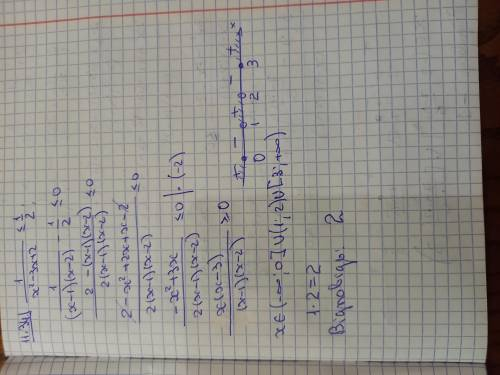 11.34) 1/(x²-3x+2) ≤ 1/2
1/((x-1)(x-2)) - 1/2 ≤ 0
(2-(x-1)(x-2))/(2(x-1)(x-2)) ≤ 0
(2-x²+2x+x-2)/(2(x-1)(x-2)) ≤ 0
(-x²+3x)/(2(x-1)(x-2)) ≤ 0 | · (-2)
(x(x-3))/((x-1)(x-2)) ≥ 0
+ - + - + x
0 1 2 3
x∈(-∞;0]∪(1;2)∪[3;+∞)
1·2=2
Відповідь: 2